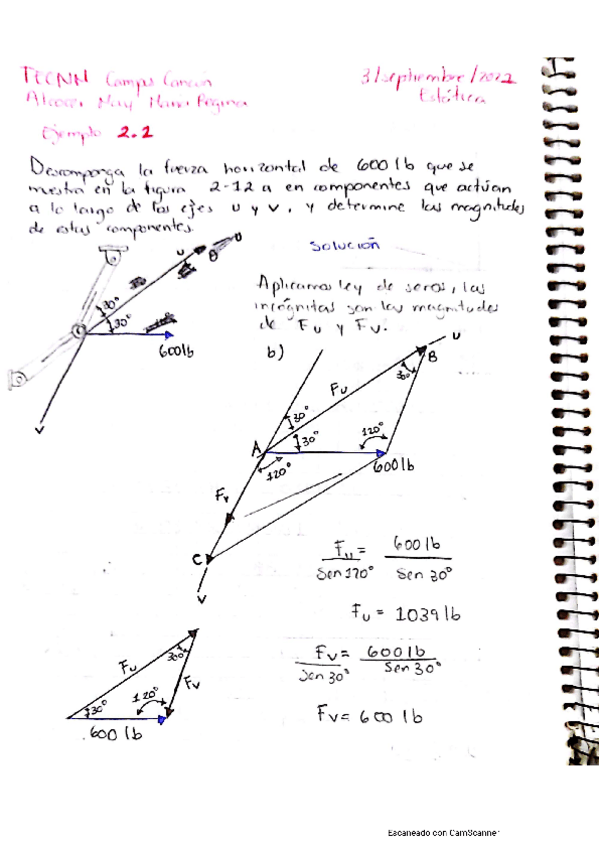 TECNM Campus Cancun
3/septiembre/2022
Estática
Ejemplo 2.1
Descomponga la fuerza horizontal de 600 lb que se
mestra en la figura 2-12 a en componentes que actúan
a lo largo de los ejes u y v, y determine las magnitudes
de estas componentes.
Solución
Aplicamos ley de senos, las
incógnitas son las magnitudes
de Fu y Fv.
u
B
30°
30°
600 lb
v
b)
u
B
30°
Fu
30°
30°
120°
A
120°
600 lb
Fv
C
v
Fu = 600 lb
Sen 120° Sen 30°
Fu = 1039 lb
Fv = 600 lb
Sen 30° Sen 30°
Fv = 600 lb
Fu
30°
Fv
30°
120°
600 lb
Escaneado con CamScanner